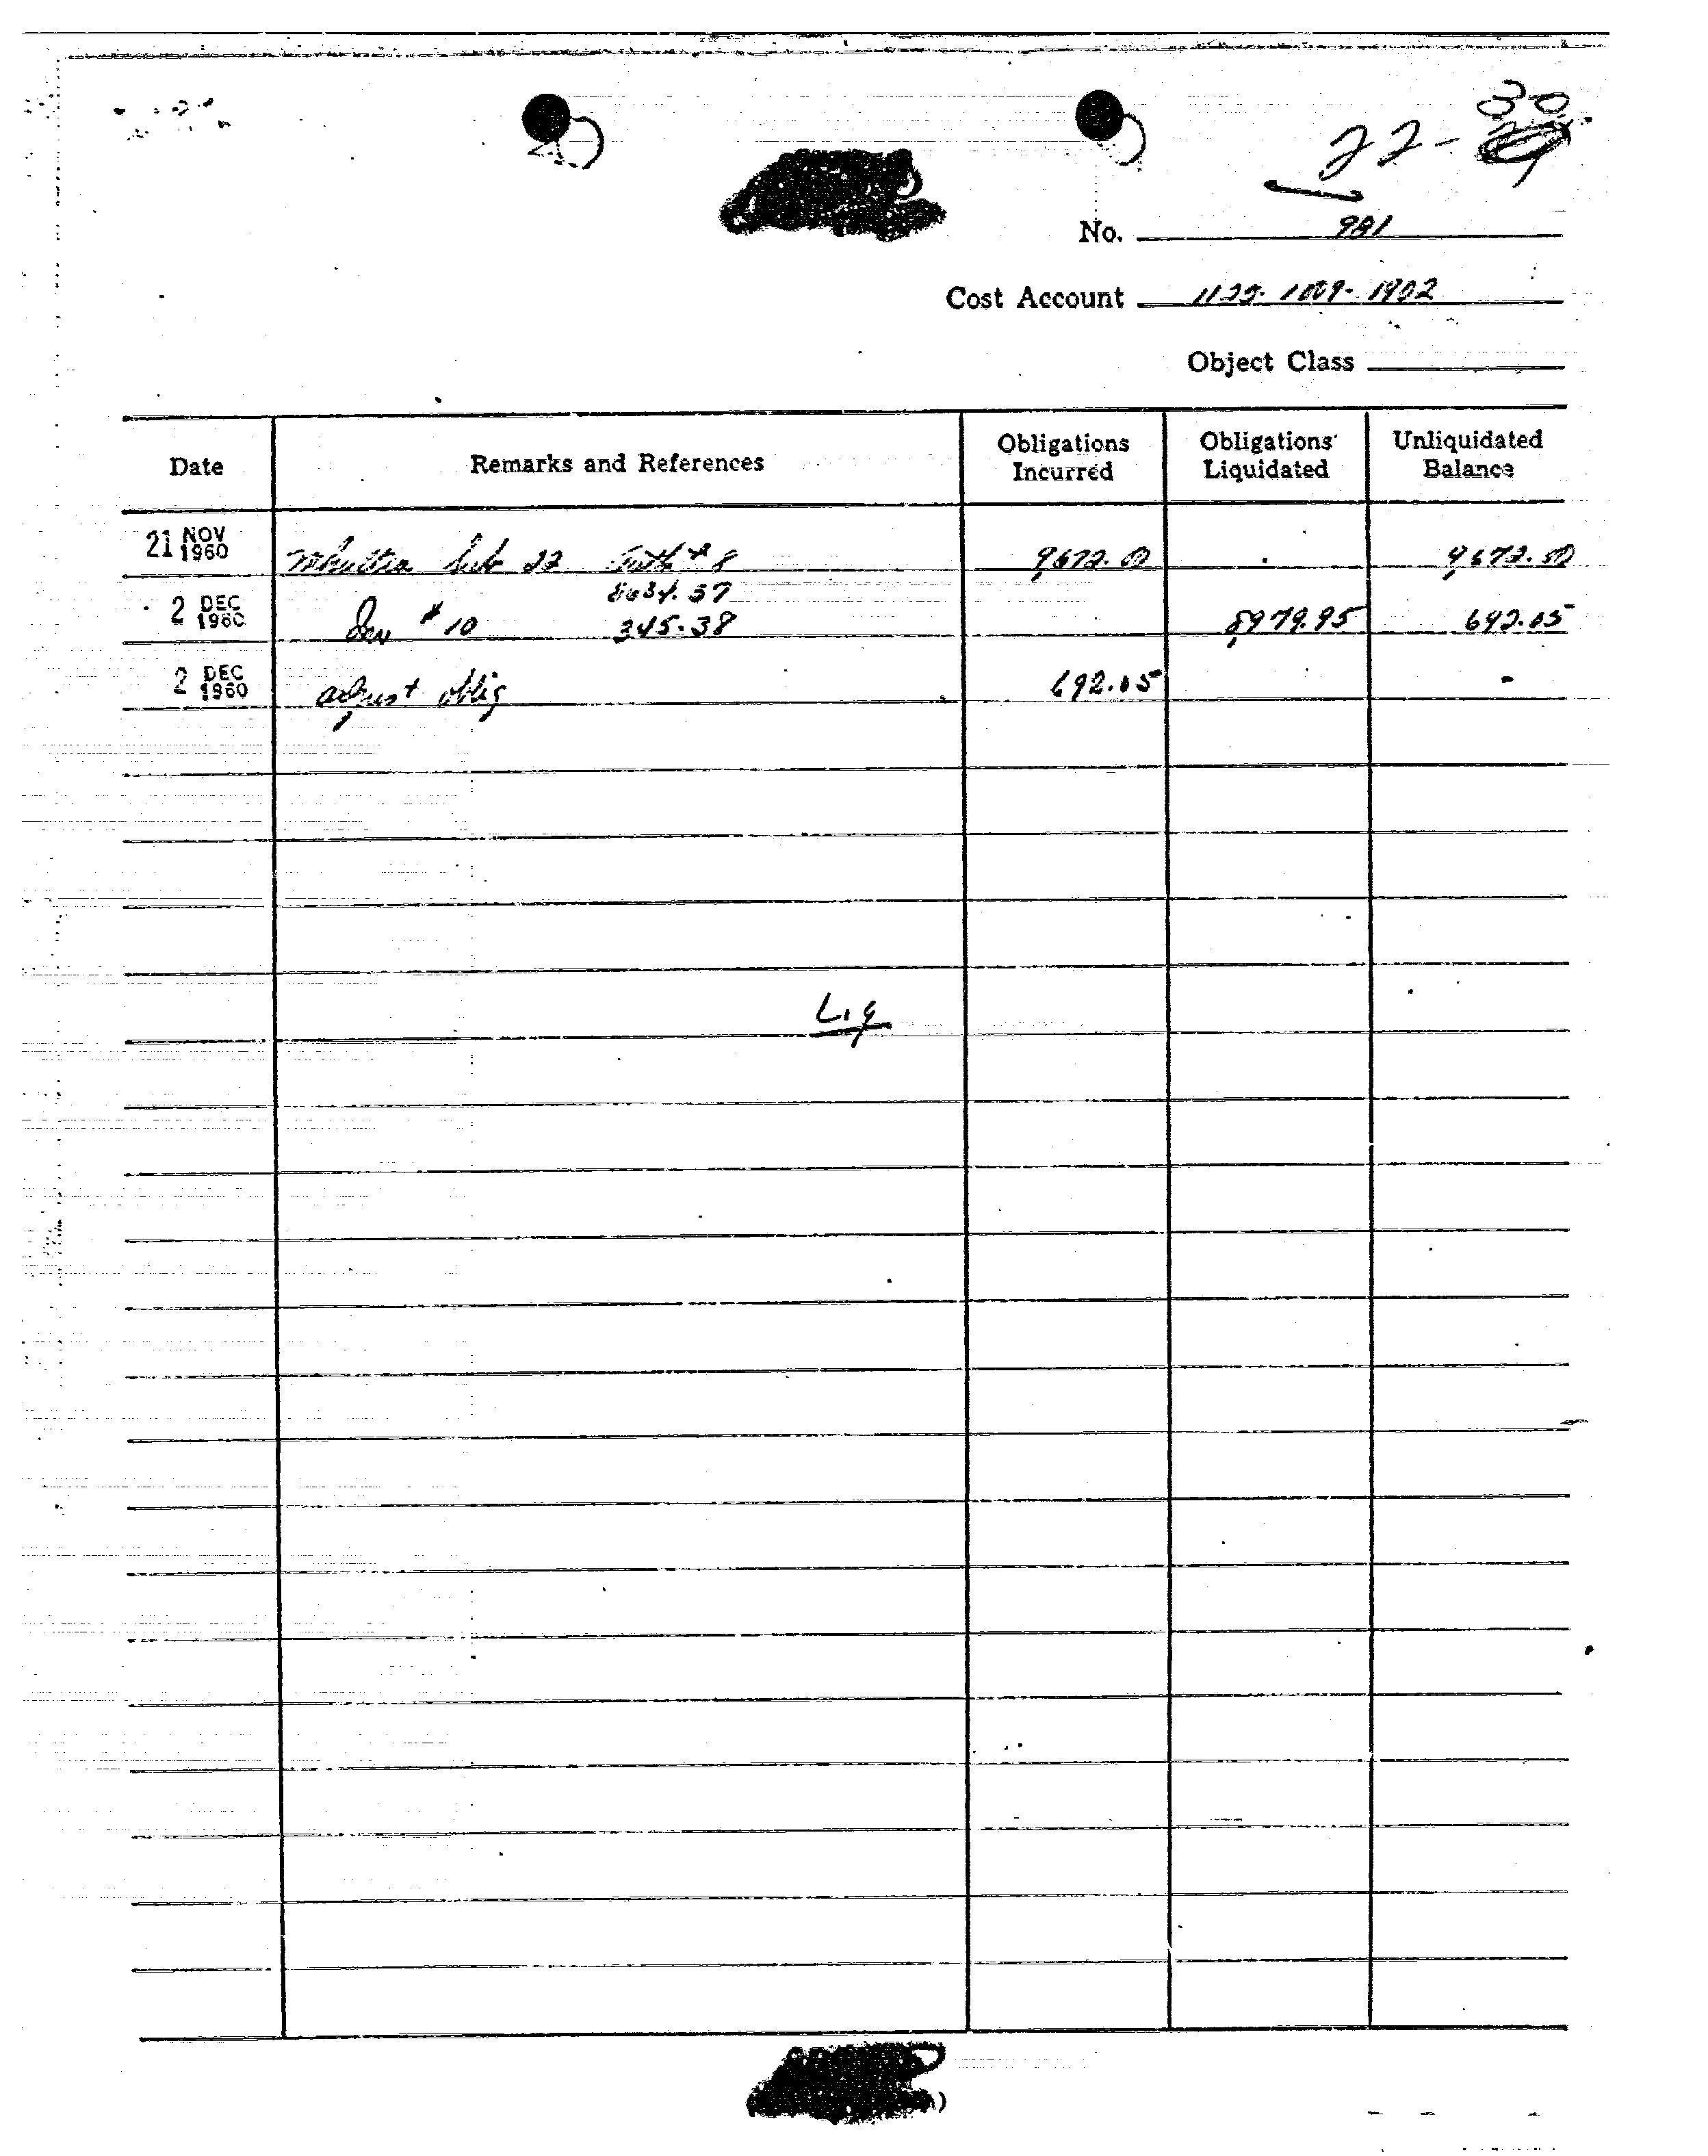 30
22-
No. 981
Cost Account 1125-1009-1902
Object Class
Date Remarks and References Obligations Incurred Obligations Liquidated Unliquidated Balance
21 NOV 1960 Mkultra Sub 22 Auth # 8 9,672.00 9,672.00
8634.57
2 DEC 1960 Inv # 10 345.38 8,979.95 692.05
2 DEC 1960 adjust oblig 692.05 -
Liq